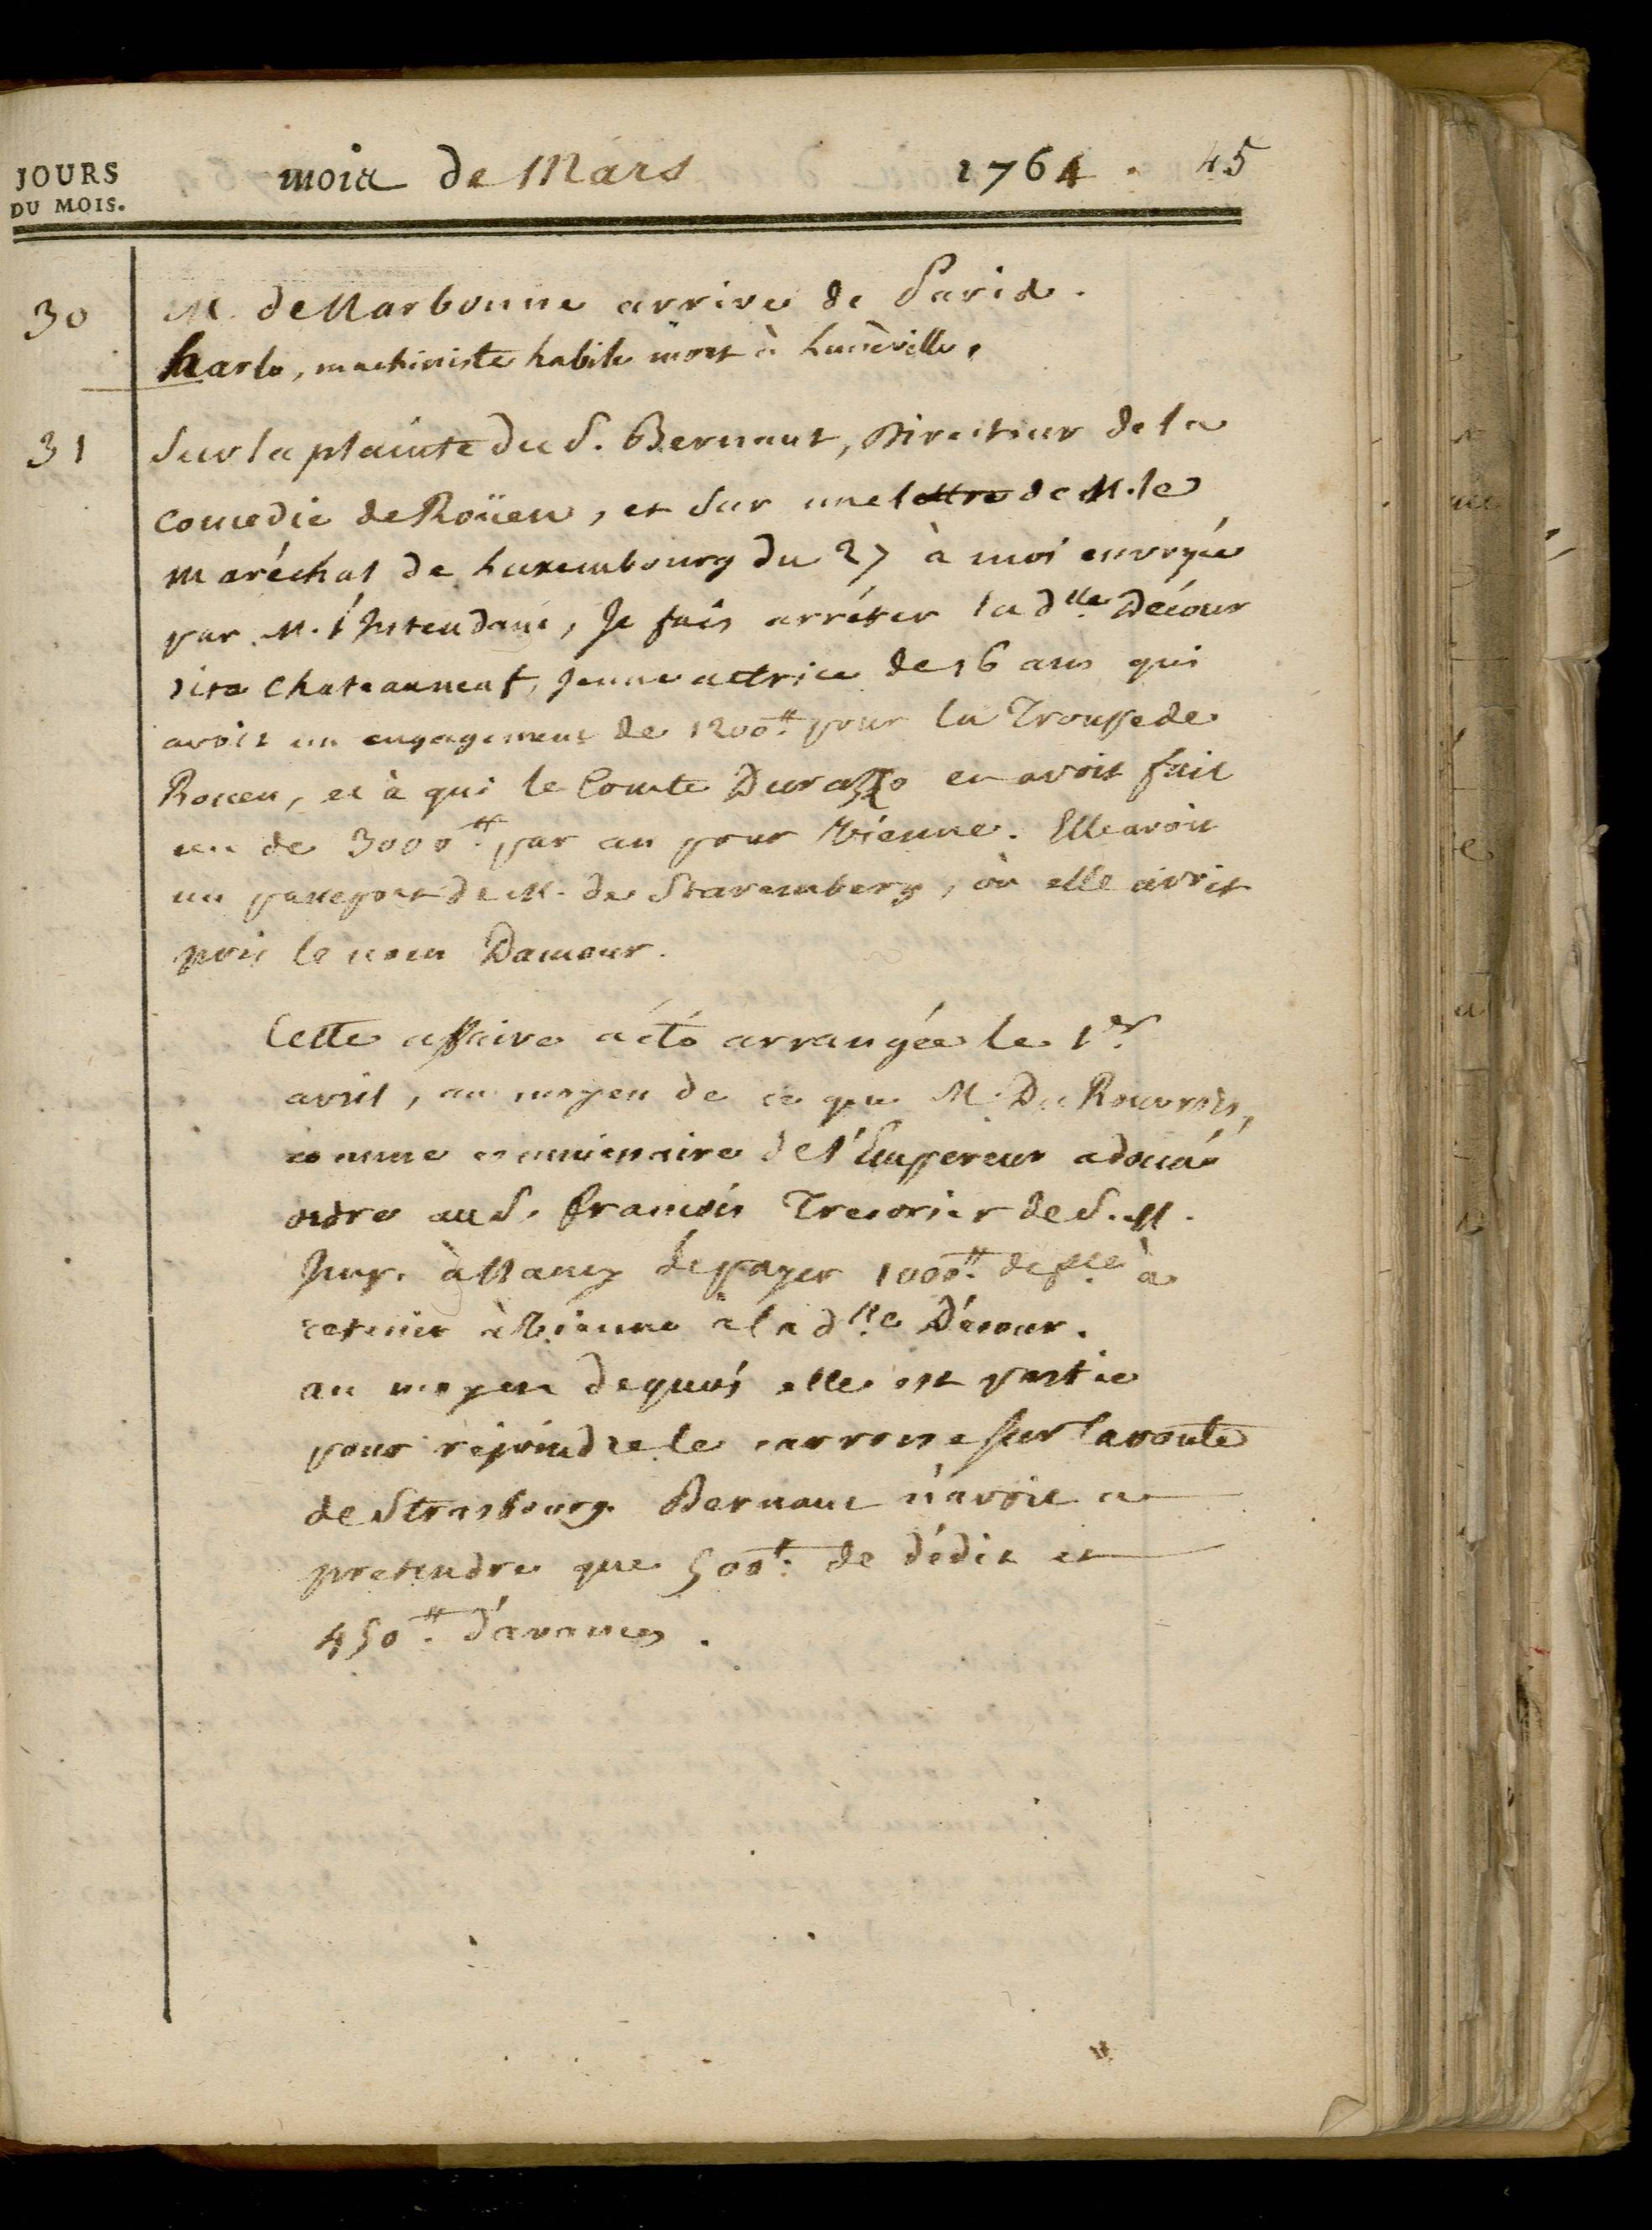 JOURS
DU MOIS.
mois de Mars 1764. 45
30 M. de Narbonne arrive de Paris.
harlo, machiniste habile mort à Lunéville.
31 Sur la plainte du S. Bernaut, Directeur de la
comedie de Roüen, et sur une lettre de M. le
maréchal de Luxembourg du 27 à moi envoyée
par M. l'Intendant, Je fais arrêter la dlle Décour
dite Chateauneuf, Jeune actrice de 16 ans qui
avoit un engagement de 1200tt pour la Trouppe de
Rouen, et à qui le Comte Durazzo en avoit fait
un de 3000tt par an pour Vienne. Elle avoit
un passeport de M. de Staremberg, où elle avoit
pris le nom Damour.
Cette affaire a été arrangée le 1er
avril, au moyen de ce que M. Du Rouvrois,
comme commissaire de l'Empereur a donné
ordre au S. francois Tresorier de S. M.
Imp. à Nancy de payer 1000tt de fce à
retenir à Vienne à la dlle Décour.
au moyen dequoi elle est partie
pour rejoindre le carrosse sur la route
de Strasbourg. Bernaut n'avoit a
pretendre que 500tt de dédit et
450tt d'avances.